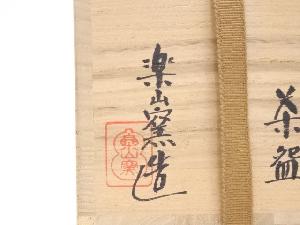 茶盌
楽山窯造
楽山窯